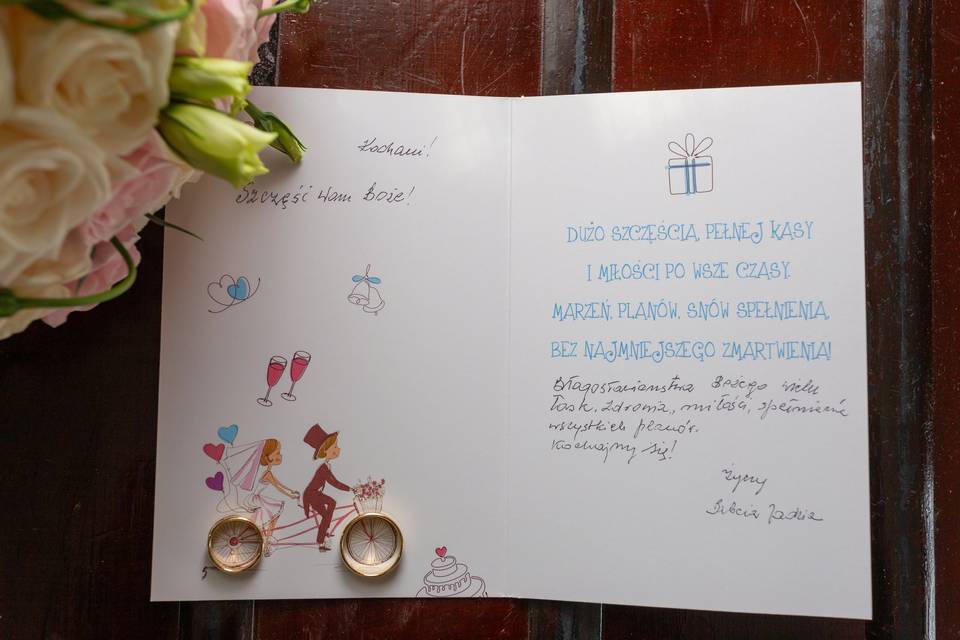 Kochani!
Szczęść Wam Boże!
DUŻO SZCZĘŚCIA, PEŁNEJ KASY
I MIŁOŚCI PO WSZE CZASY.
MARZEŃ, PLANÓW, SNÓW SPEŁNIENIA,
BEZ NAJMNIEJSZEGO ZMARTWIENIA!
Błogosławieństwa Bożego wielu
łask, zdrowia, miłości, spełnienia
wszystkich planów.
Kochajmy się!
Życzy
Babcia Jadzia